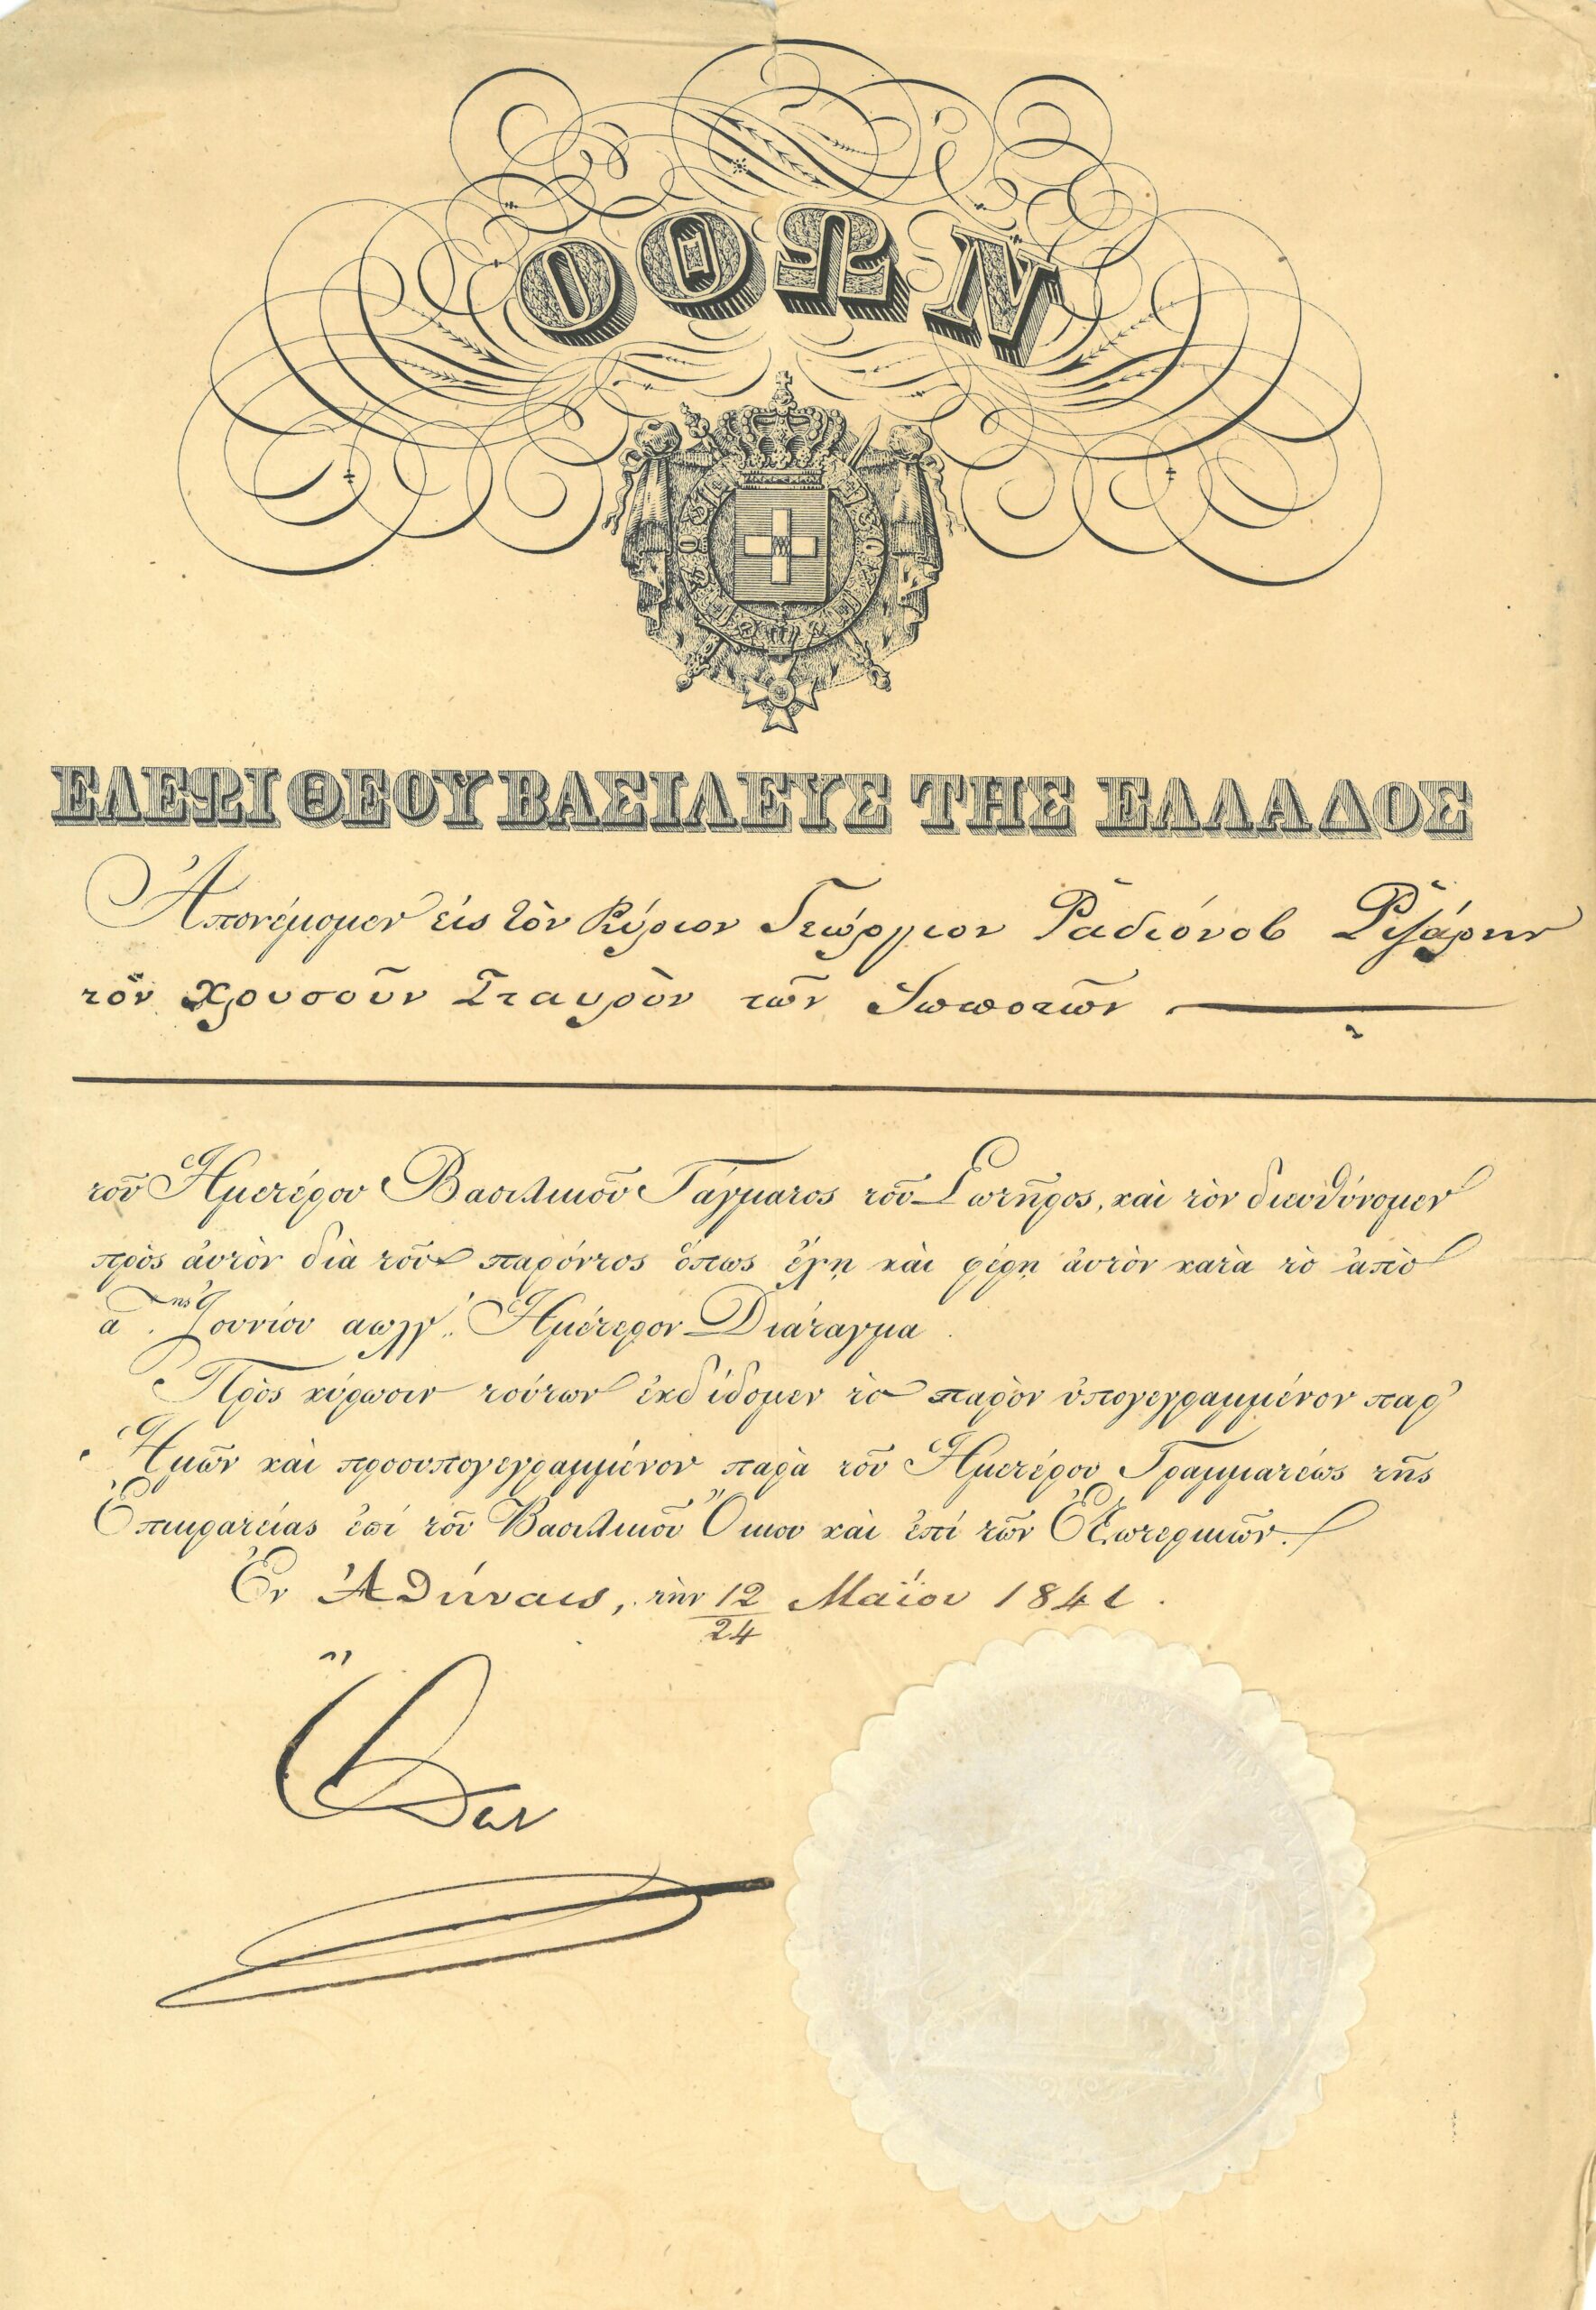 ΟΘΩΝ
ΕΛΕΩΙ ΘΕΟΥ ΒΑΣΙΛΕΥΣ ΤΗΣ ΕΛΛΑΔΟΣ
Ἀπονέμομεν εἰς τὸν Κύριον Γεώργιον Ῥαδιόνοβ Ῥιζάρην
τὸν Χρυσοῦν Σταυρὸν τῶν Ἱπποτῶν
τοῦ Ἡμετέρου Βασιλικοῦ Τάγματος τοῦ Σωτῆρος, καὶ τὸν διευθύνομεν
πρὸς ἀυτὸν διὰ τοῦ παρόντος ὅπως ἔχῃ καὶ φέρῃ ἀυτὸν κατὰ τὸ ἀπὸ
ά.ης Ἰουνίου αωλγ΄. Ἡμέτερον Διάταγμα.
Πρὸς κύρωσιν τούτων ἐκδίδομεν τὸ παρὸν ὑπογεγραμμένον παρ᾽
Ἡμῶν καὶ προσυπογεγραμμένον παρὰ τοῦ Ἡμετέρου Γραμματέως τῆς
Ἐπικρατείας ἐπί τοῦ Βασιλικοῦ Οἴκου καὶ ἐπί τῶν Ἐξωτερικῶν.
Ἐν Ἀθήναις, τὴν 12/24 Μαΐου 1841.
Ὄθων